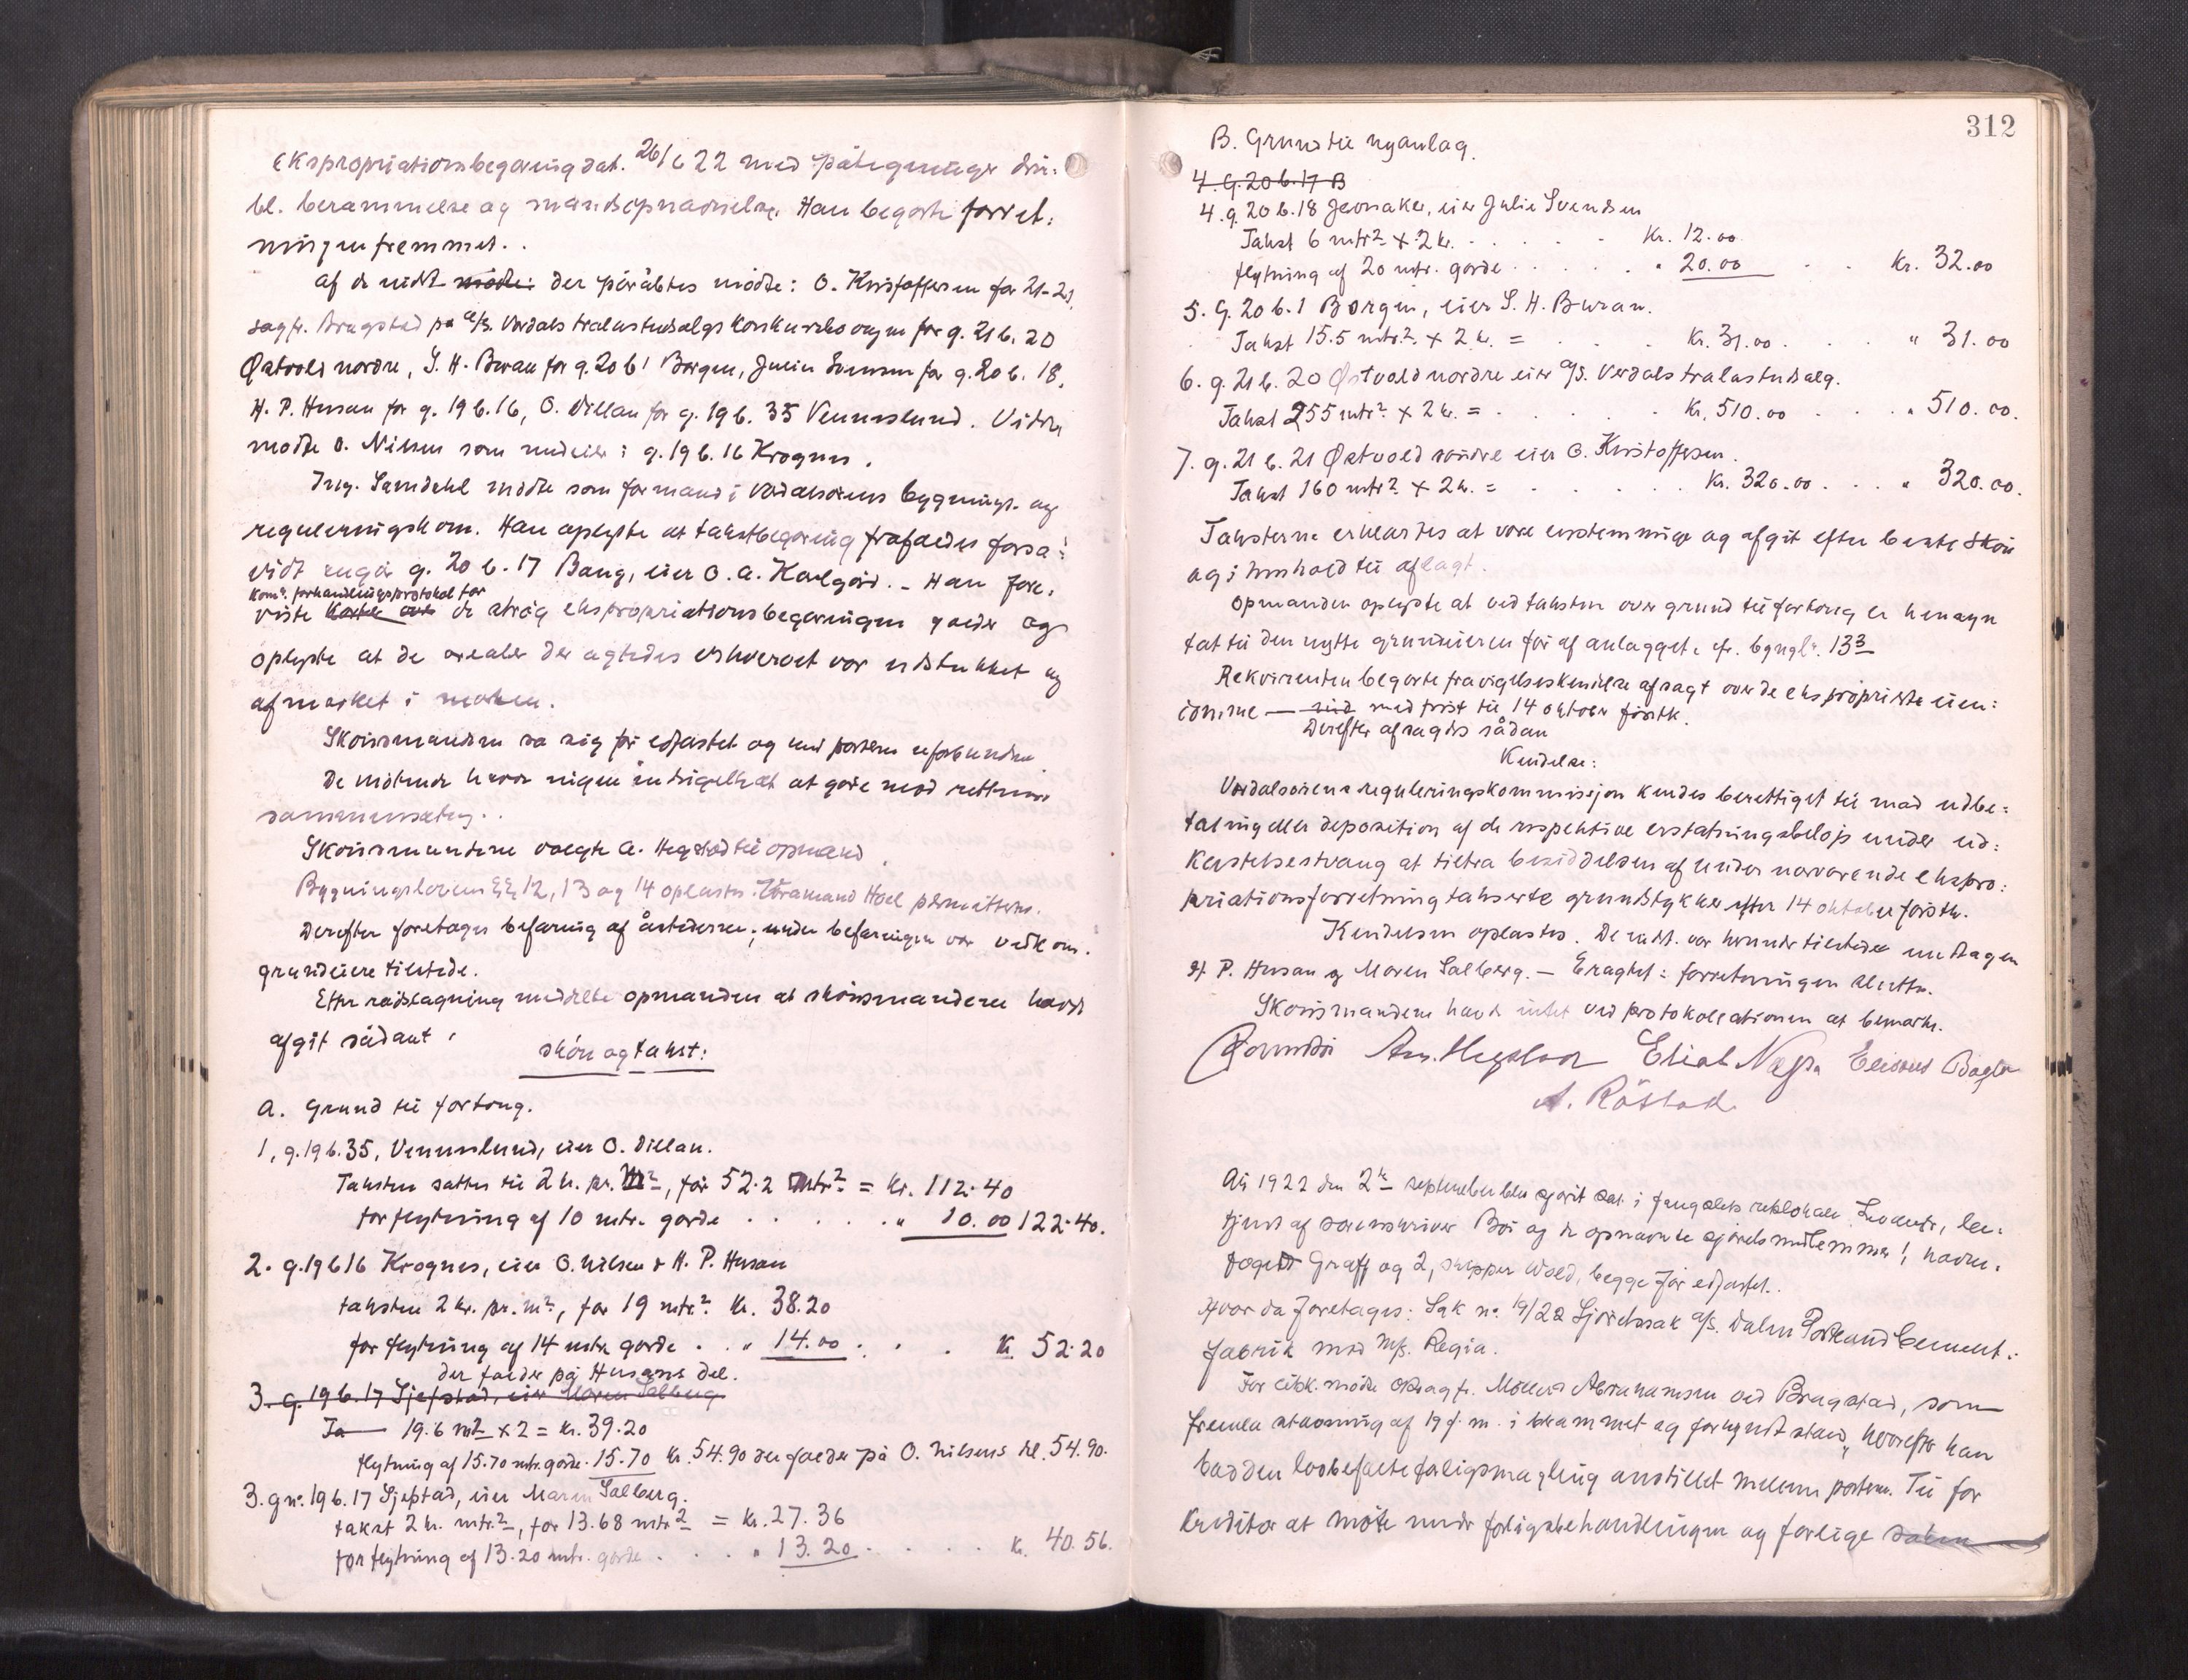 Ekspropriationsbegæring dat. 26/6 22 med påtegninger din:
bl. berammelse og mandsopnævnelse. Han begærte forret:
ningen fremmet.
Af de indk. møtte: der påråbtes møtte: O. Kristoffersen for 21-21,
sagf. Bragstad på A/S. Verdals trælastudsalgs konkursbos vegne for g. 21 b. 20
Østvold nordre, S. H. Buran for g. 20 b 1 Borgen, Julie Svensen for g. 20 b. 18,
H. P. Husan for g. 19 b. 16, O. Dillan for g. 19 b. 35 Vennerslund. Videre
møtte O. Nilsen som medeier i g. 19 b. 16 Krognes.
Ing. Samdahl møtte som formand i Verdalsørens bygnings- og
reguleringskom. Han oplyste at takstbegæring frafaldes forså:
vidt angår g. 20 b. 17 Bang, eier O. A. Karlgård. - Han fore:
kom's. forhandlingsprotokol for
viste de strøg ekspropriationsbegæringen gjælder og
oplyste at de arealer der agtedes erhvervet var udstukket og
afmerket i marken.
Skjønsmændene sa sig før edfæstet og med parterne uforbundne.
De møtende havde ingen indsigelse at gjøre mod rettens
sammensætning.
Skjønsmændene valgte A. Hegstad til opmand.
Bygningslovens §§ 12, 13 og 14 oplæstes. Lensmand Hoel permitteres.
Derefter foretages befaring af åstederne; under befaringen var vedkom.
grundeiere tilstede.
Efter rådslagning meddelte opmanden at skjønsmændene havde
afgit sådant:
skjøn og takst:
A. Grund til fortoug.
1, g. 19 b. 35, Vennerslund, eier O. Dillan.
Taksten sættes til 2 kr. pr. m², for 52.2 mtr² = kr. 112.40
for flytning af 10 mtr. gjærde . . . . . " 10.00 122.40.
2. g. 19 b 16 Krognes, eier O. Nilsen & H. P. Husan
taksten 2 kr. pr. m², for 19 mtr² kr. 38.20
for flytning af 14 mtr. gjærde . . " 14.00 . . . kr. 52.20
der falder på Husans del.
3. g. 19 b. 17 Sjefstad, eier Maren Salberg
Ta— 19.6 m² x 2 = kr. 39.20
flytning af 15.70 mtr. gjærde. 15.70 kr. 54.90 der falder på O. Nilsens del. 54.90.
3. g nr. 19 b. 17 Sjefstad, eier Maren Salberg.
takst 2 kr. mtr.², for 13.68 mtr² = kr. 27.36
for flytning af 13.20 mtr. gjærde . . . . " 13.20 . . . . . kr. 40.56.
312
B. Grund til nyanlæg.
4. g. 20 b. 17 B
4. g. 20 b. 18 Jevnaker, eier Julie Svendsen
Takst 6 mtr² x 2 kr. . . . . . Kr. 12.00
flytning af 20 mtr. gjærde . . . . . " 20.00 . . Kr. 32.00
5. G. 20 b. 1 Borgen, eier S. H. Buran.
Takst 15.5 mtr.² x 2 kr. = . . . Kr. 31.00 . . . " 31.00
6. g. 21 b. 20 Østvold nordre eier A/S. Verdals trælastudsalg.
Takst 255 mtr² x 2 kr. = . . . . . Kr. 510.00 . . . . " 510.00.
7. g. 21 b. 21 Østvold søndre eier O. Kristoffersen.
Takst 160 mtr² x 2 kr. = . . . . . Kr. 320.00 . . . " 320.00.
Taksterne erklærtes at være enstemmige og afgit efter beste skjøn
og i henhold til aflagt.
Opmanden oplyste at ved taksten over grund til fortoug er hensyn
tat til den nytte grundeieren får af anlægget. cfr. bygngl. 13³
Rekvirenten begærte fravigelseskjendelse afsagt over de eksproprierte eien:
domme — med frist til 14 oktober førstk.
Derefter afsagdes sådan
Kjendelse:
Verdalsørens reguleringskommissjon kjendes berettiget til mod udbe:
taling eller deposition af de respektive erstatningsbeløp under ud:
kastelsestvang at tiltræ besiddelsen af under nærværende ekspro:
priationsforretning takserte grundstykker efter 14 oktober førstk.
Kjendelsen oplæstes. De indk. var herunder tilstede undtagen
H. P. Husan og Maren Salberg. - Eragtet: forretningen sluttes.
Skjønsmændene havde intet ved protokollationen at bemærke.
A. Røstad
År 1922 den 2 september blev sjørit sat i fængslets retslokale Levanger, be:
tjent af sorenskriver Bøi og de opnævnte sjøretsmedlemmer 1, havne:
foged Graff og 2, skipper Wold, begge før edfæstet.
Hvor da foretages: Sak nr. 19/22 Sjøretssak A/S. Dalen Portland Cement:
fabrik mod M/S. Regia.
For citk. møtte o.r.sagf. Møller Abrahamsen ved Bragstad, som
fremla stævning af 19 f. m. i berammet og forkyndt stand, hvorefter han
bad den lovbefalte forligsmægling anstillet mellem parterne. Til for
kreditor at møte under forligsbehandlingen og forlige saken